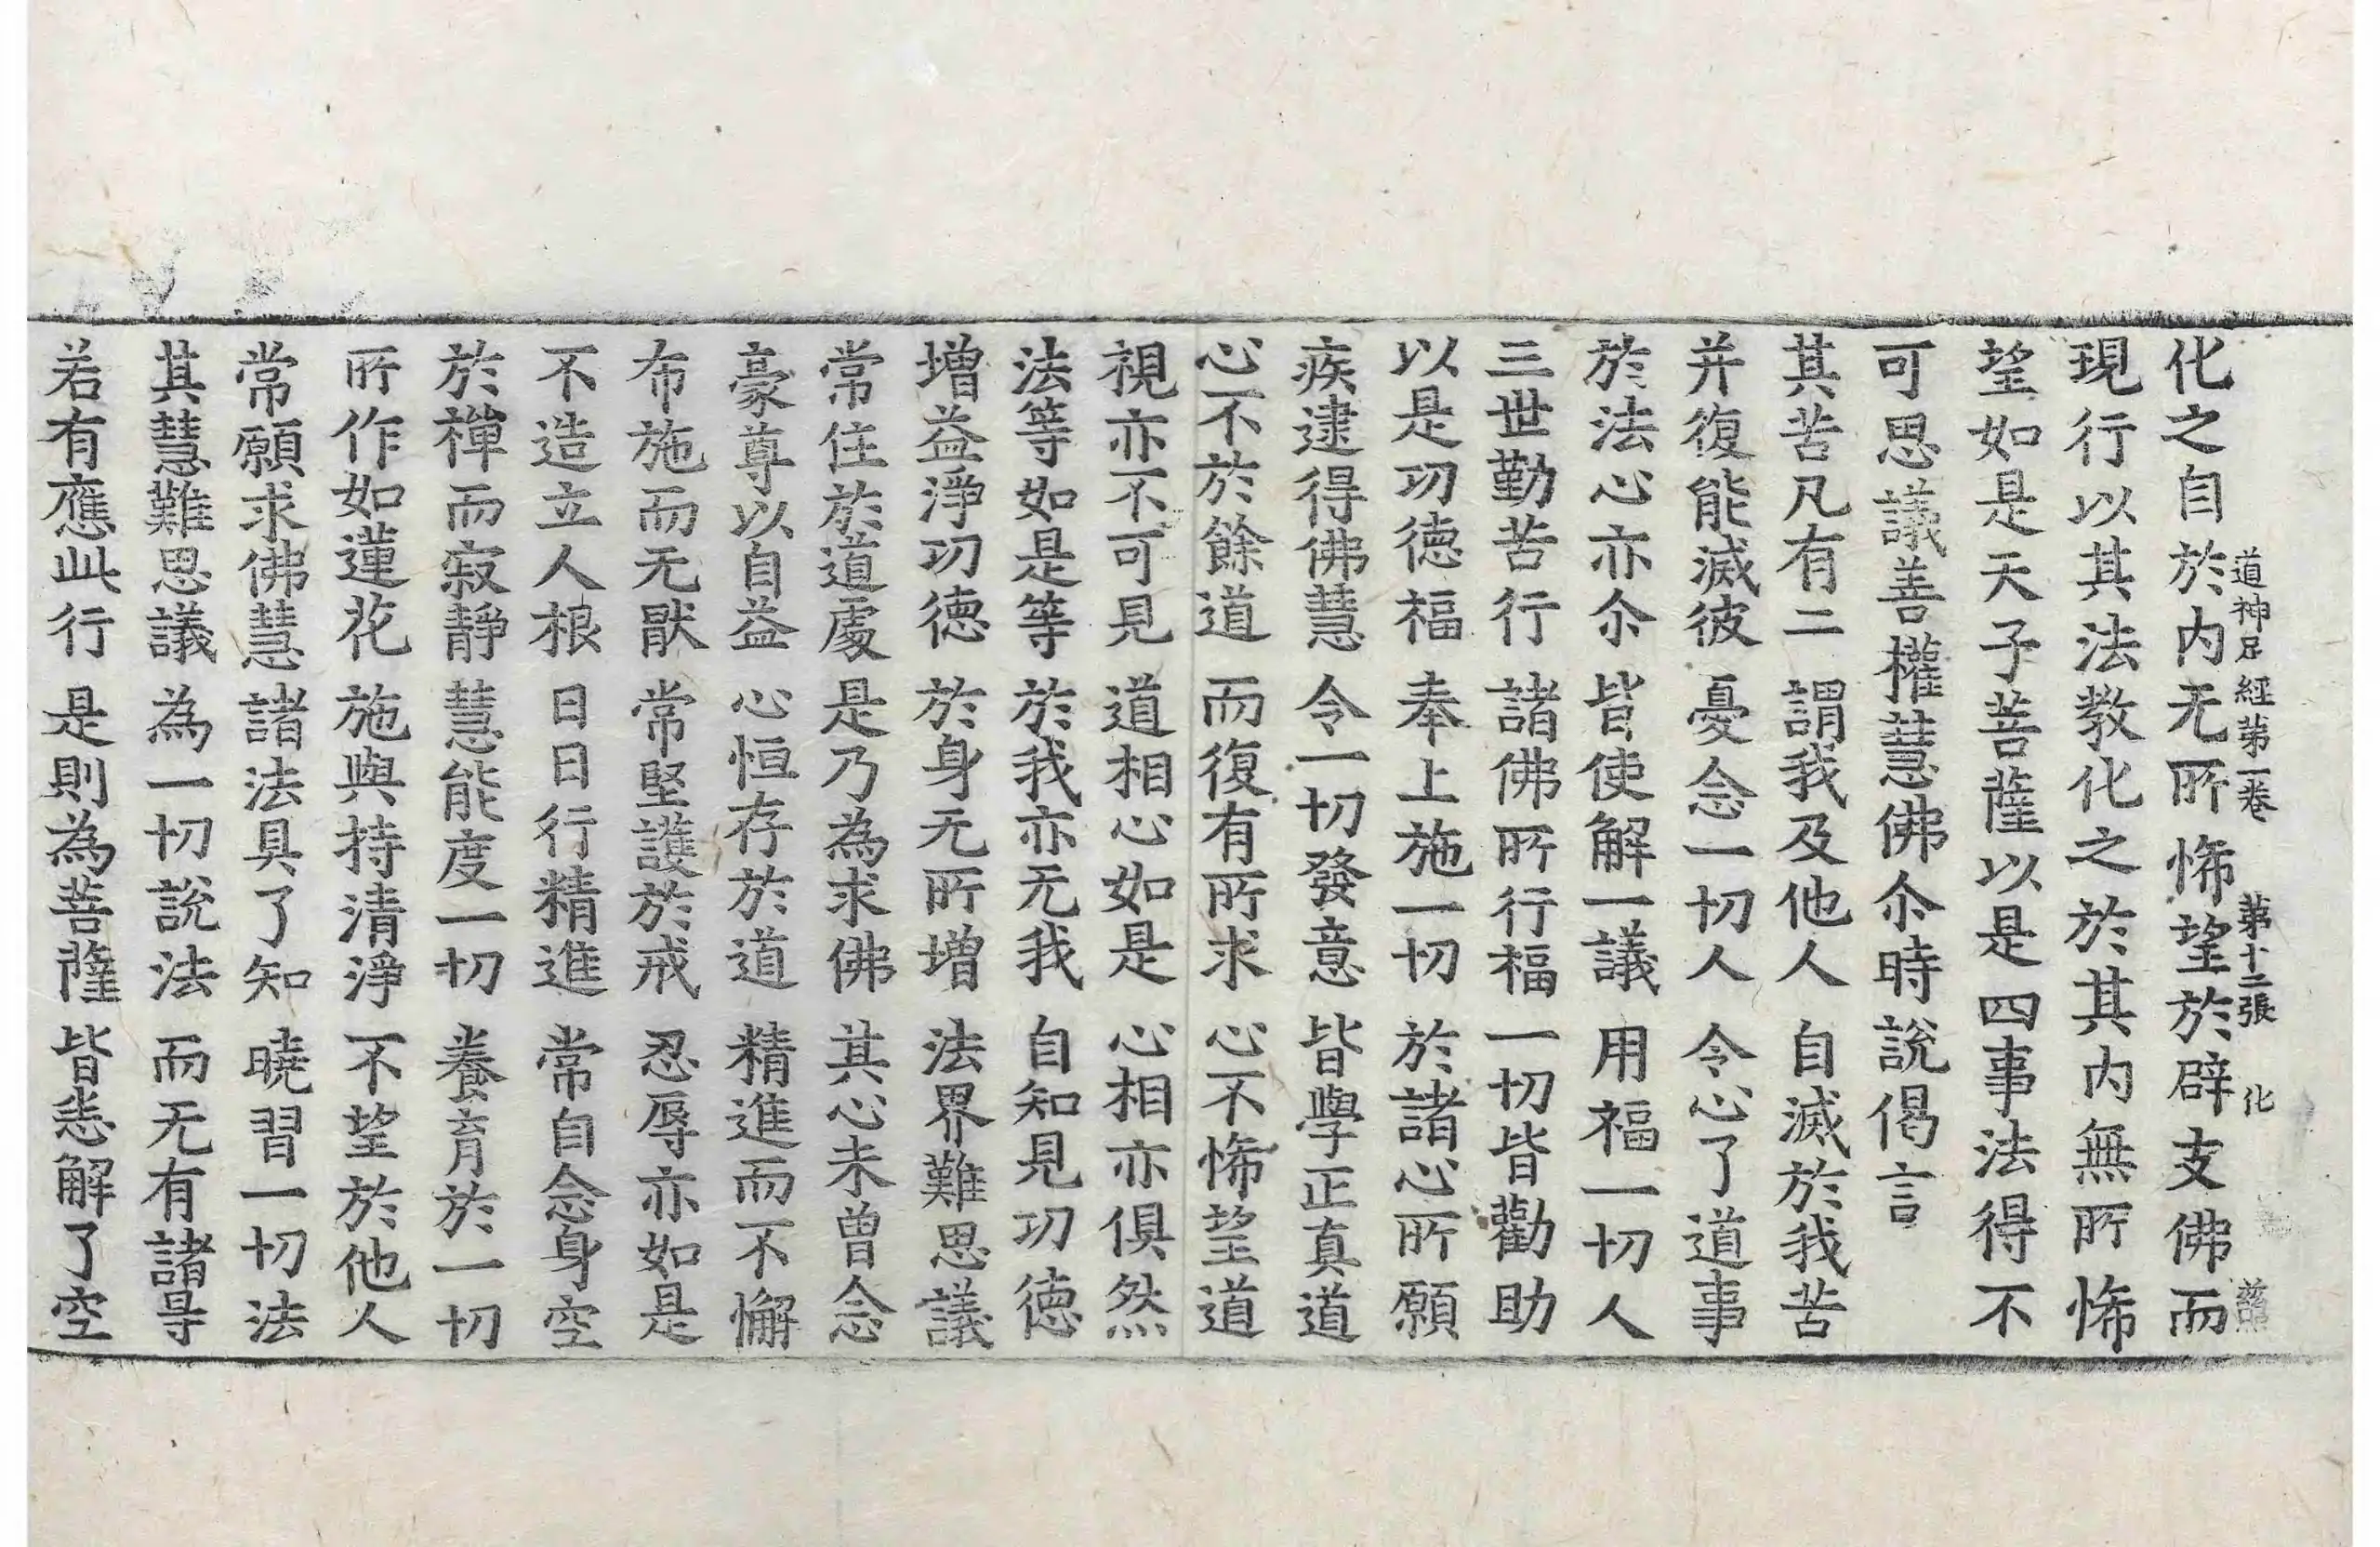 道神足經第一卷　第十二張　化
化之自於内无所悕望於辟支佛而
現行以其法教化之於其内無所悕
望如是天子菩薩以是四事法得不
可思議善權慧佛尒時說偈言
其苦凡有二　謂我及他人　自滅於我苦
并復能滅彼　憂念一切人　令心了道事
於法心亦尒　皆使解一議　用福一切人
三世勤苦行　諸佛所行福　一切皆勸助
以是功德福　奉上施一切　於諸心所願
疾逮得佛慧　令一切發意　皆學正真道
心不於餘道　而復有所求　心不悕望道
視亦不可見　道相心如是　心相亦俱然
法等如是等　於我亦无我　自知見功德
增益淨功德　於身无所增　法界難思議
常住於道處　是乃為求佛　其心未曾念
豪尊以自益　心恒存於道　精進而不懈
布施而无猒　常堅護於戒　忍辱亦如是
不造立人根　日日行精進　常自念身空
於禪而寂靜　慧能度一切　養育於一切
所作如蓮花　施與持清淨　不望於他人
常願求佛慧　諸法具了知　曉習一切法
其慧難思議　為一切說法　而无有諸㝵
若有應此行　是則為菩薩　皆悉解了空